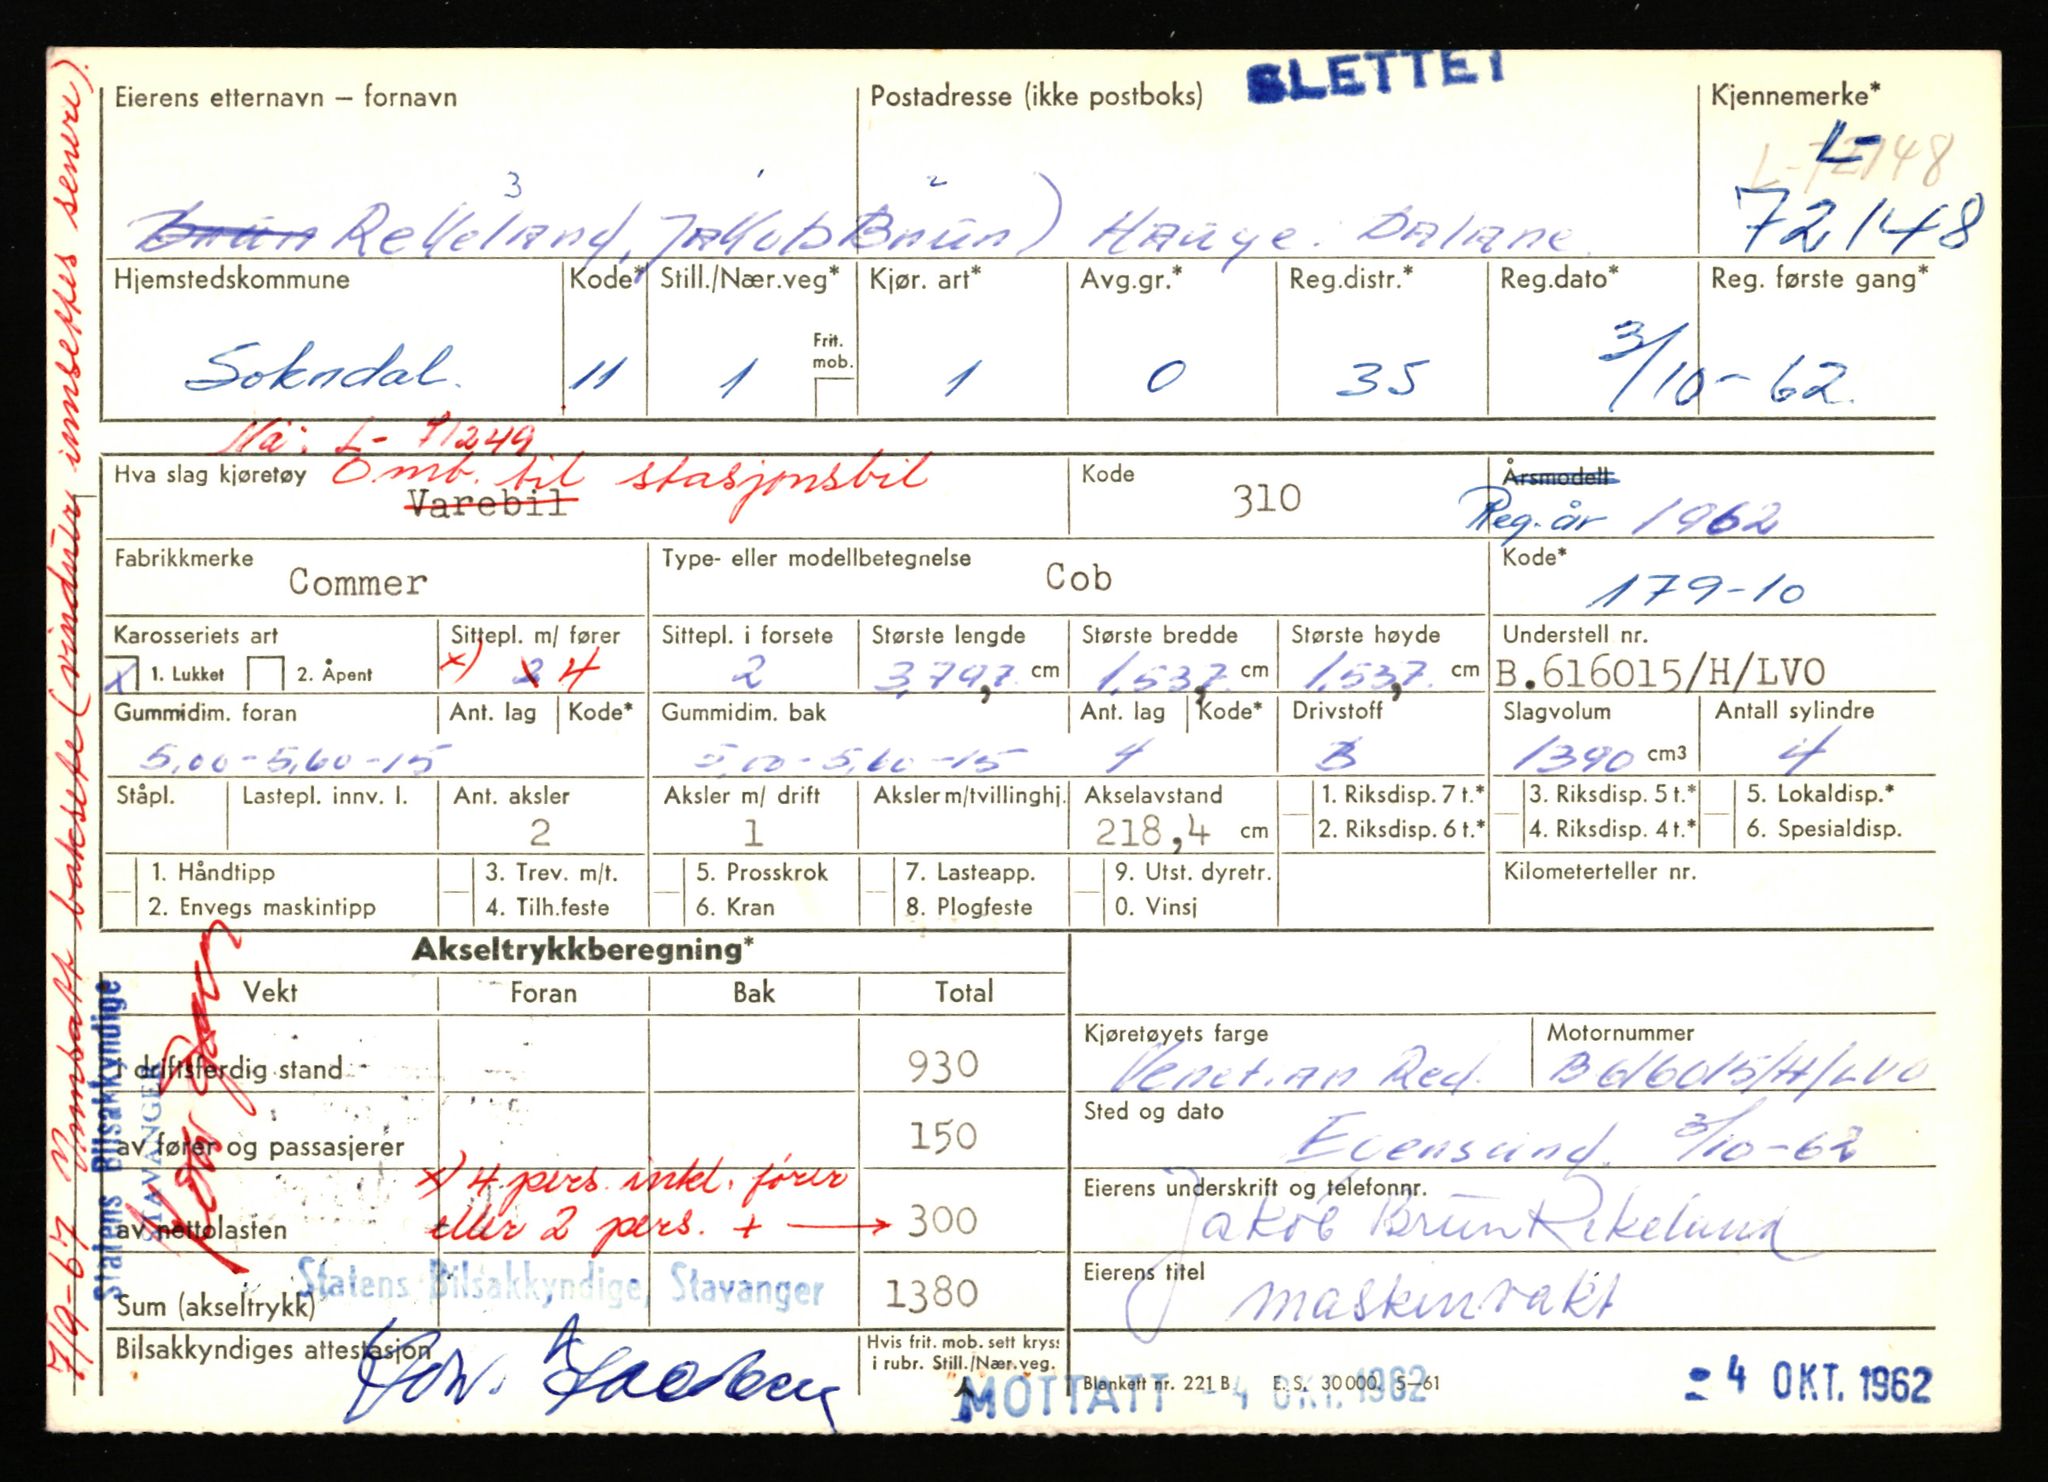 SLETTET
Eierens etternavn – fornavn
Postadresse (ikke postboks)
Kjennemerke*
L-72148
L-
72148
3 2
Rekeland, Jakob Brun) Hauge i Dalane
Hjemstedskommune Kode* Still./Nær.veg* Kjør. art* Avg.gr.* Reg.distr.* Reg.dato* Reg. første gang*
Frit. mob.
Sokndal. 11 1 1 0 35 3/10-62.
Nå: L- 71249
Hva slag kjøretøy Omb. til stasjonsbil Kode 310 Årsmodell
Varebil Reg. år 1962
Fabrikkmerke Commer Type- eller modellbetegnelse Cob Kode* 179-10
Karosseriets art Sittepl. m/ fører Sittepl. i forsete Største lengde Største bredde Største høyde Understell nr.
x 1. Lukket 2. Åpent x) 4 2 3,797, cm 1,537, cm 1,537, cm B.616015/H/LVO
Gummidim. foran Ant. lag Kode* Gummidim. bak Ant. lag Kode* Drivstoff Slagvolum Antall sylindre
5,00-5,60-15 5,00-5,60-15 4 1390 cm3 4
Ståpl. Lastepl. innv. l. Ant. aksler Aksler m/ drift Aksler m/tvillinghj. Akselavstand 1. Riksdisp. 7 t.* 3. Riksdisp. 5 t.* 5. Lokaldisp.*
2 1 218,4 cm 2. Riksdisp. 6 t.* 4. Riksdisp. 4 t.* 6. Spesialdisp.
1. Håndtipp 3. Trev. m/t. 5. Prosskrok 7. Lasteapp. 9. Utst. dyretr. Kilometerteller nr.
2. Envegs maskintipp 4. Tilh.feste 6. Kran 8. Plogfeste 0. Vinsj
Akseltrykkberegning*
Vekt Foran Bak Total
i driftsferdig stand 930
av fører og passasjerer 150
x) 4 pers. inkl. fører
av nettolasten eller 2 pers. + → 300
Sum (akseltrykk) 1380
Statens Bilsakkyndige, Stavanger
Bilsakkyndiges attestasjon
Hvis frit. mob. sett kryss
i rubr. Still./Nær.veg.
Kjøretøyets farge Motornummer
Venetian Red. B616015/H/LVO
Sted og dato
Egersund. 3/10-62
Eierens underskrift og telefonnr.
Jakob Brun Rekeland
Eierens titel
maskinvakt
Blankett nr. 221 B E. S. 30 000. 5-61
MOTTATT - 4 OKT. 1962
- 4 OKT. 1962
7/9-67 Innsatt baksete (vinduer innsettes senere).
Statens Bilsakkyndige
STAVANGER